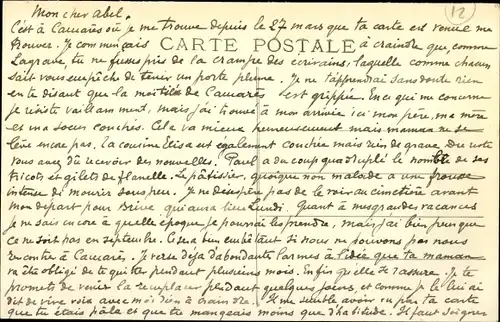 12
Mon cher Abel.
C'est à Camarès où je me trouve depuis le 27 mars que ta carte est venue me
trouver. Je commençais
CARTE POSTALE
à craindre que, comme
Lagrave, tu ne fusses pris de la crampe des écrivains, laquelle comme chacun
sait vous empêche de tenir un porte plume. Je ne t'apprendrai sans doute rien
en te disant que la moitié de Camarès est grippée. En ce qui me concerne
je résiste vaillamment, mais j'ai trouvé à mon arrivée ici mon père, ma mère
et ma soeur couchés. Cela va mieux heureusement mais maman ne se
lève encore pas. La cousine Elisa est également couchée mais rien de grave. De votre
vous avez dû recevoir des nouvelles. Paul a du coup quadruplé le nombre de ses
tricots et gilets de flanelle. Le pâtissier, quoique non malade a une frousse
intense de mourir sous peu. Je ne désespère pas de le voir au cimetière avant
mon départ pour Brive qui aura lieu Lundi. Quant à mes grandes vacances
je ne sais encore à quelle époque je pourrai les prendre, mais j'ai bien peur que
ce ne soit pas en septembre. Ce sera bien embêtant si nous ne pouvons pas nous
rencontrer à Camarès. Je verse déjà d'abondantes larmes à l'idée que ta maman
va être obligé de te quitter pendant plusieurs mois. Enfin qu'elle se rassure. Je te
promets de venir la remplacer pendant quelques jours, et comme je le lui ai
dit de vive voix avec moi rien à craindre. Il me semble avoir vu par ta carte
que tu étais pâle et que tu mangeais moins que d'habitude. Il faut soigner